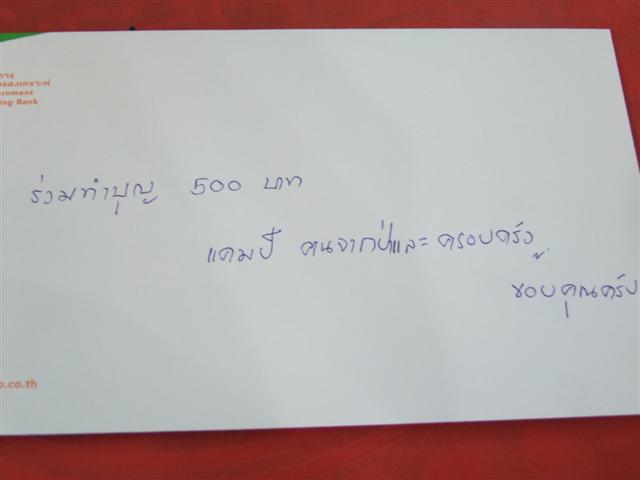 การ
รสงเคราะห์
ernment
ing Bank
ร่วมทำบุญ 500 บาท
แคมป์ คนจากป่าและครอบครัว
ขอบคุณครับ
o.co.th